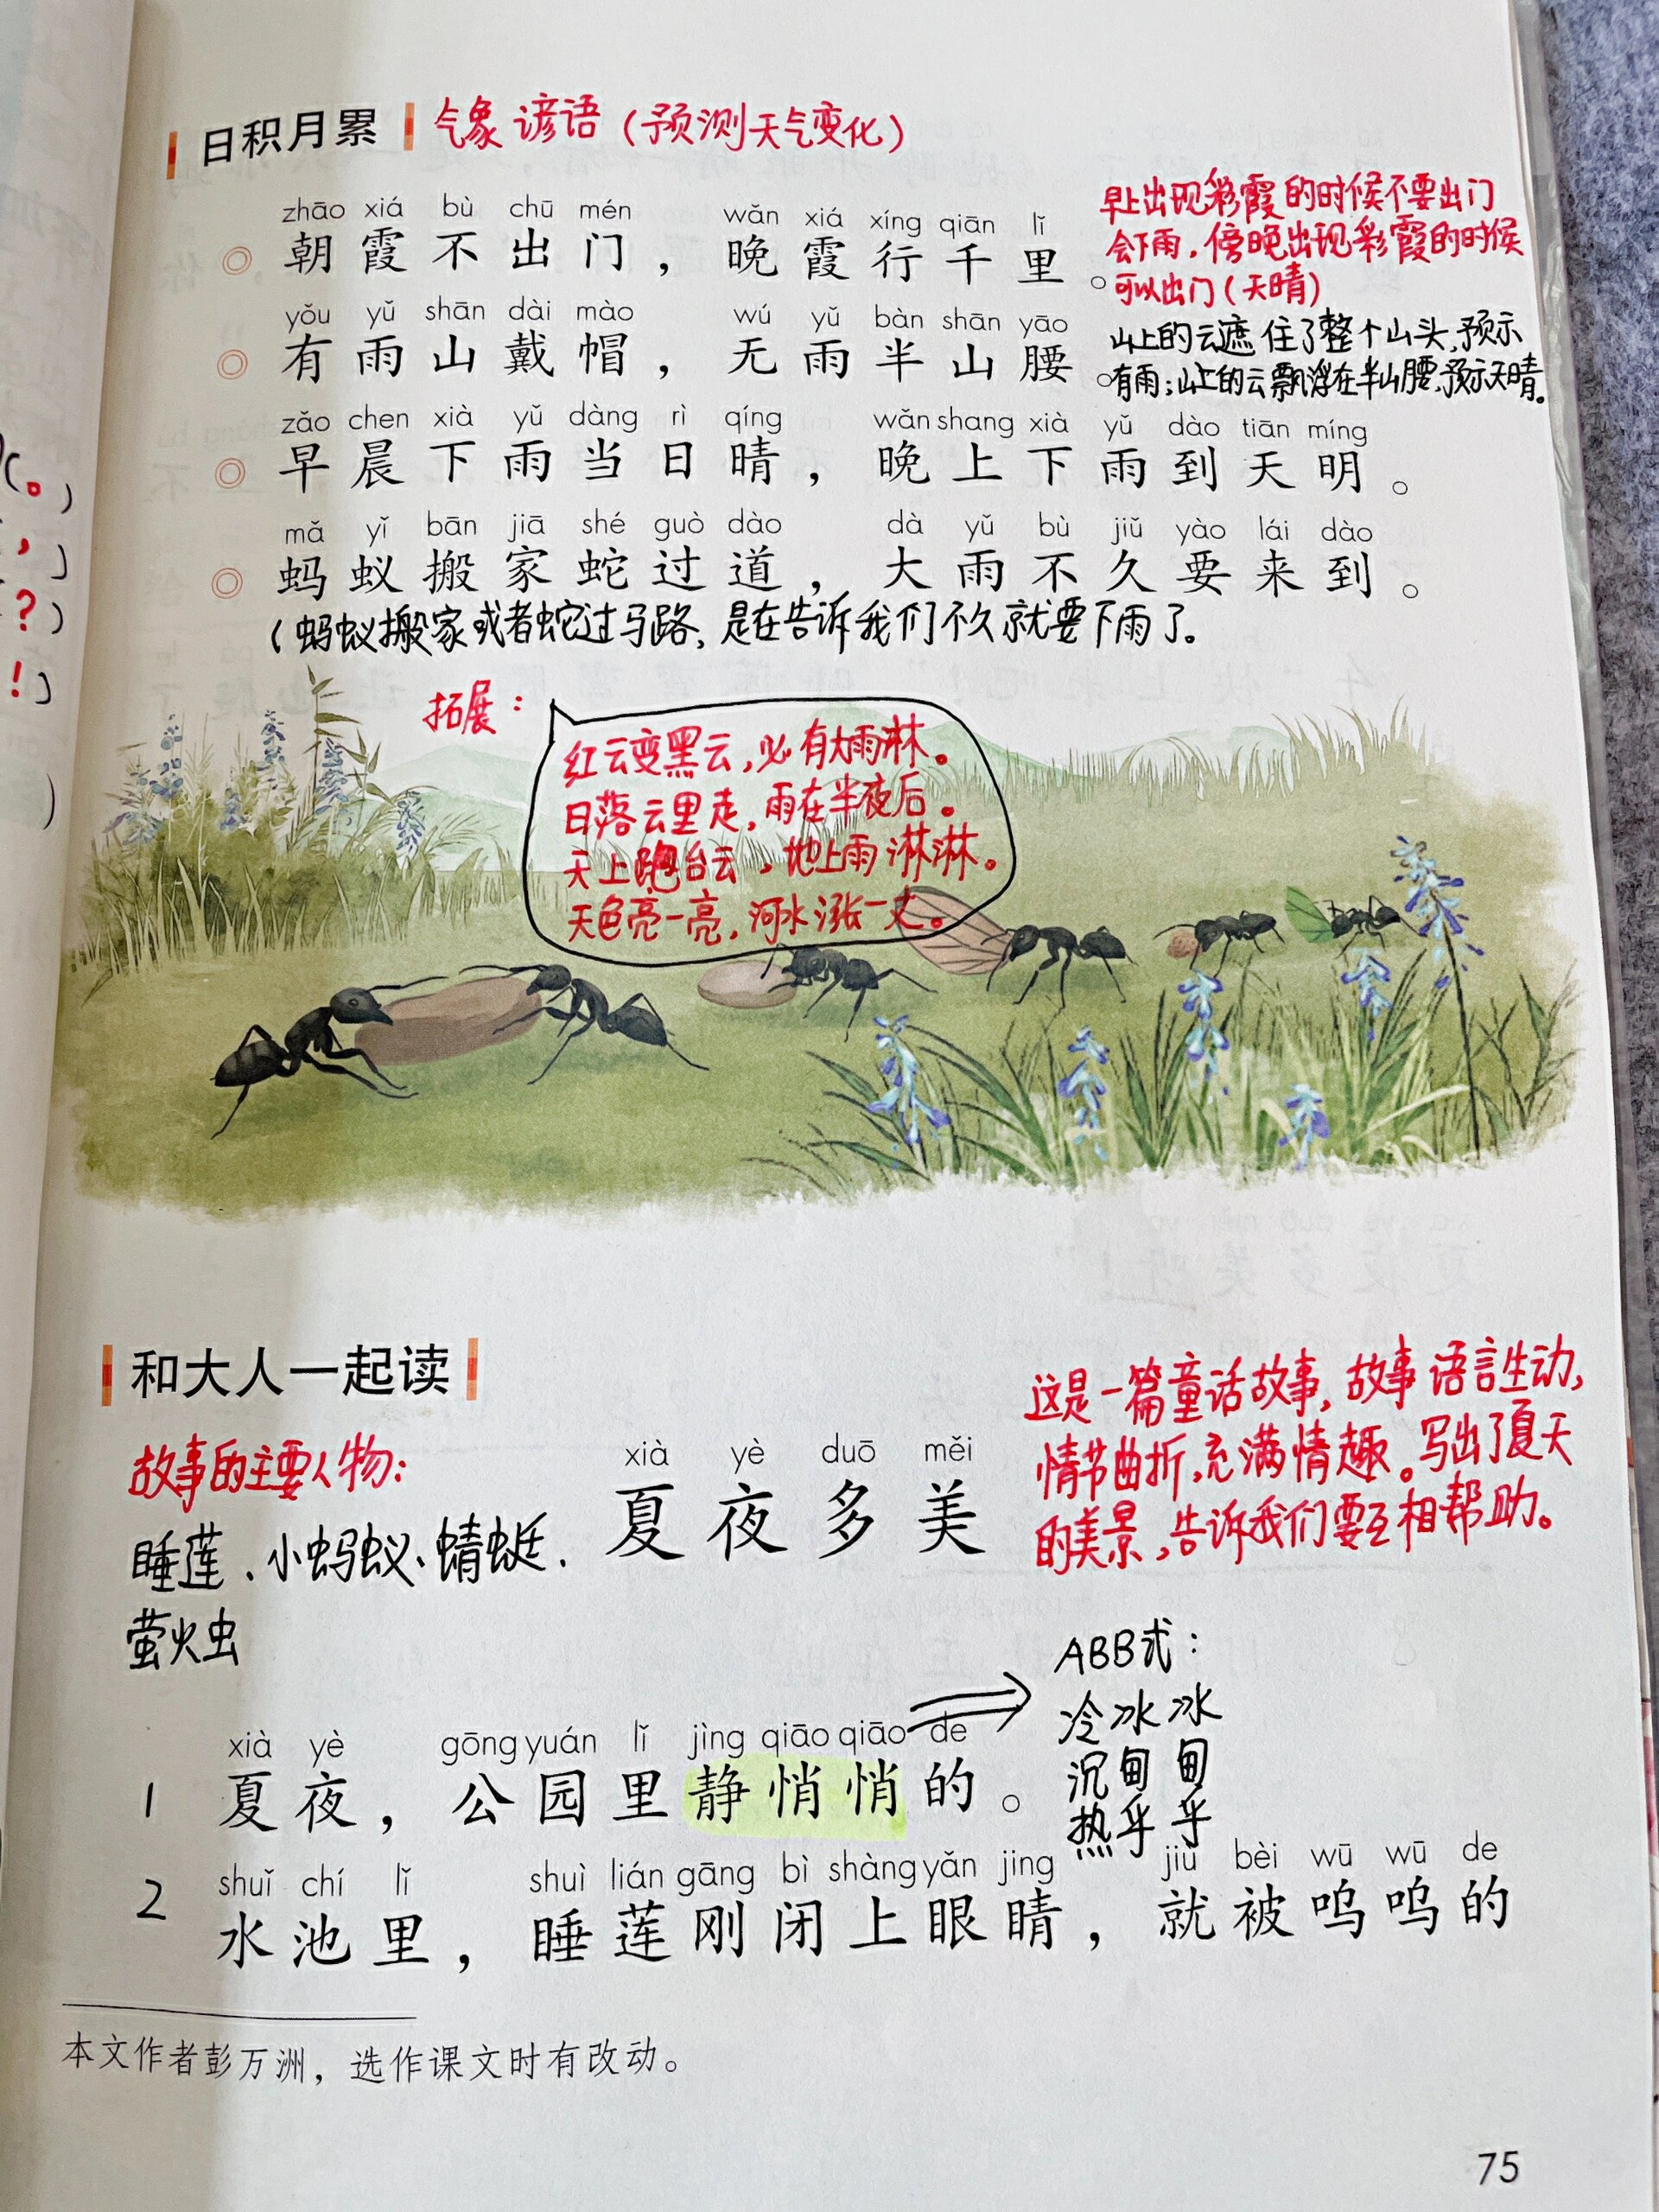 日积月累 气象谚语（预测天气变化）
zhāo xiá bù chū mén wǎn xiá xíng qiān lǐ
◎ 朝霞不出门，晚霞行千里。
早上出现彩霞的时候不要出门
会下雨，傍晚出现彩霞的时候
可以出门（天晴）
yǒu yǔ shān dài mào wú yǔ bàn shān yāo
◎ 有雨山戴帽，无雨半山腰。
山上的云遮住了整个山头，预示
有雨；山上的云飘浮在半山腰，预示天晴。
zǎo chen xià yǔ dàng rì qíng wǎn shang xià yǔ dào tiān míng
◎ 早晨下雨当日晴，晚上下雨到天明。
mǎ yǐ bān jiā shé guò dào dà yǔ bù jiǔ yào lái dào
◎ 蚂蚁搬家蛇过道，大雨不久要来到。
（蚂蚁搬家或者蛇过马路，是在告诉我们不久就要下雨了。
拓展：
红云变黑云，必有大雨淋。
日落云里走，雨在半夜后。
天上跑台云，地上雨淋淋。
天色亮一亮，河水涨一丈。
和大人一起读
故事的主要人物：
睡莲、小蚂蚁、蜻蜓、
萤火虫
xià yè duō měi
夏夜多美
这是一篇童话故事，故事语言生动，
情节曲折，充满情趣。写出了夏天
的美景，告诉我们要互相帮助。
ABB式：
冷冰冰
沉甸甸
热乎乎
xià yè gōng yuán lǐ jìng qiāo qiāo de
1 夏夜，公园里静悄悄的。
shuǐ chí lǐ shuì lián gāng bì shàng yǎn jing jiù bèi wū wū de
2 水池里，睡莲刚闭上眼睛，就被呜呜的
本文作者彭万洲，选作课文时有改动。
75